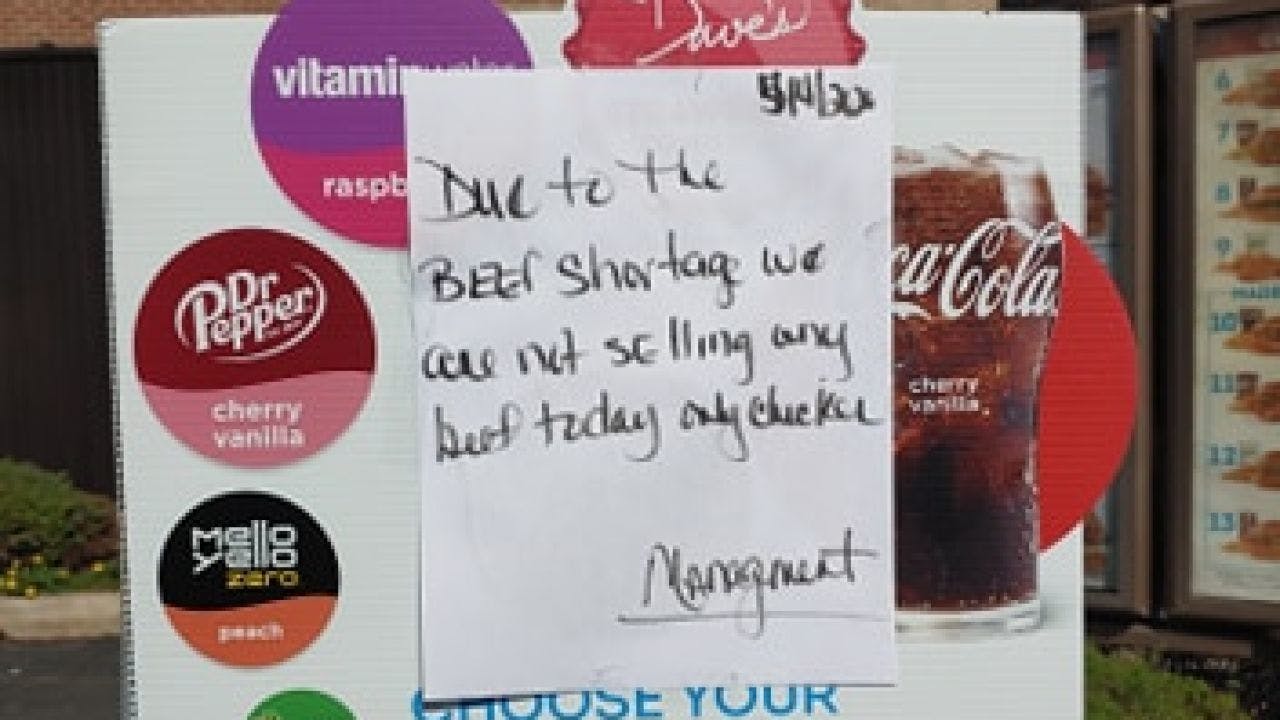 Dave's
vitaminwater
raspb
5/14/202
Due to the
BEEF shortage we
are not selling any
beef today only chicken
Managment
Dr
Pepper
cherry
vanilla
ca-Cola
cherry
vanilla
mello
yello
zero
peach
CHOOSE YOUR
6
7
8
9
10
11
12
13